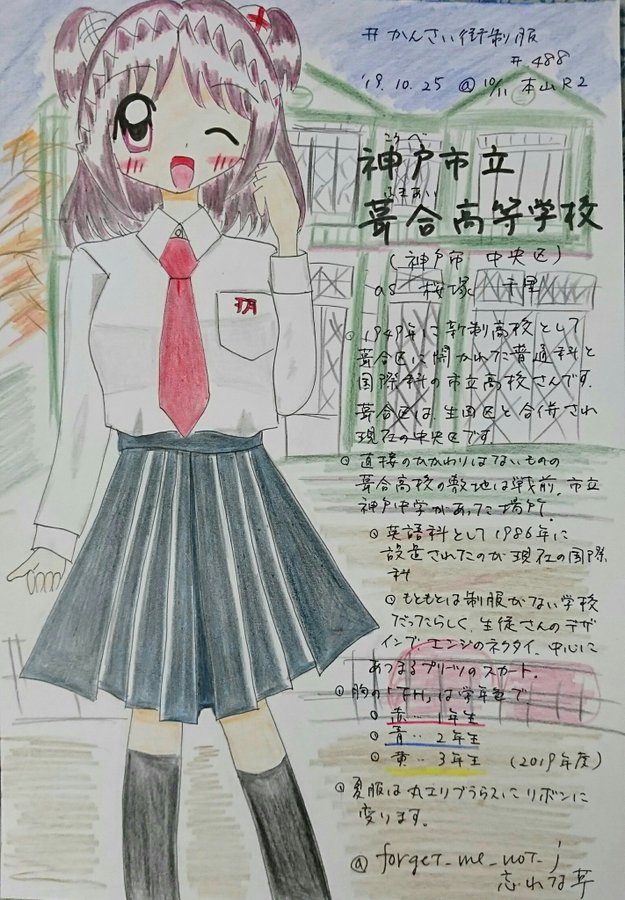 #かんさい街制服
#488
'19.10.25 @10/11 本山R2
こうべ
神戸市立
ふきあい
葺合高等学校
(神戸市 中央区)
as 桜塚 千里
○1949年に新制高校として
葺合区に開かれた普通科と
国際科の市立高校さんです。
葺合区は、生田区と合併され
現在の中央区です
○直接のかかわりはないものの
葺合高校の敷地は戦前、市立
神戸中学があった場所。
○英語科として1986年に
設造されたのが現在の国際
科
○もともとは制服がない学校
だったらしく、生徒さんのデザ
インで エンジのネクタイ、中心に
あつまるプリーツのスカート。
○胸の「FH」は学年色で
○赤…1年生
○青‥2年生
○黄‥3年生 (2019年度)
○夏服は丸エリブラウスにリボンに
変ります。
@forget_me_not_j
忘れな草